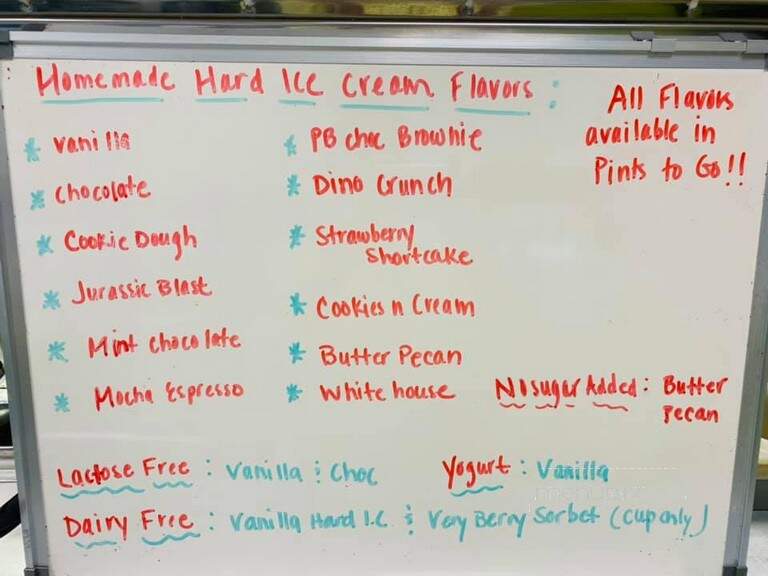 Homemade Hard Ice Cream Flavors:
All Flavors
available in
Pints to Go!!
* vanilla
* chocolate
* Cookie Dough
* Jurassic Blast
* Mint chocolate
* Mocha Espresso
* PB choc Brownie
* Dino Crunch
* Strawberry
Shortcake
* Cookies n Cream
* Butter Pecan
* White house
No sugar Added: Butter
Pecan
Lactose Free: Vanilla & Choc
Yogurt: Vanilla
Dairy Free: Vanilla Hard I.C. & Very Berry Sorbet (cup only)